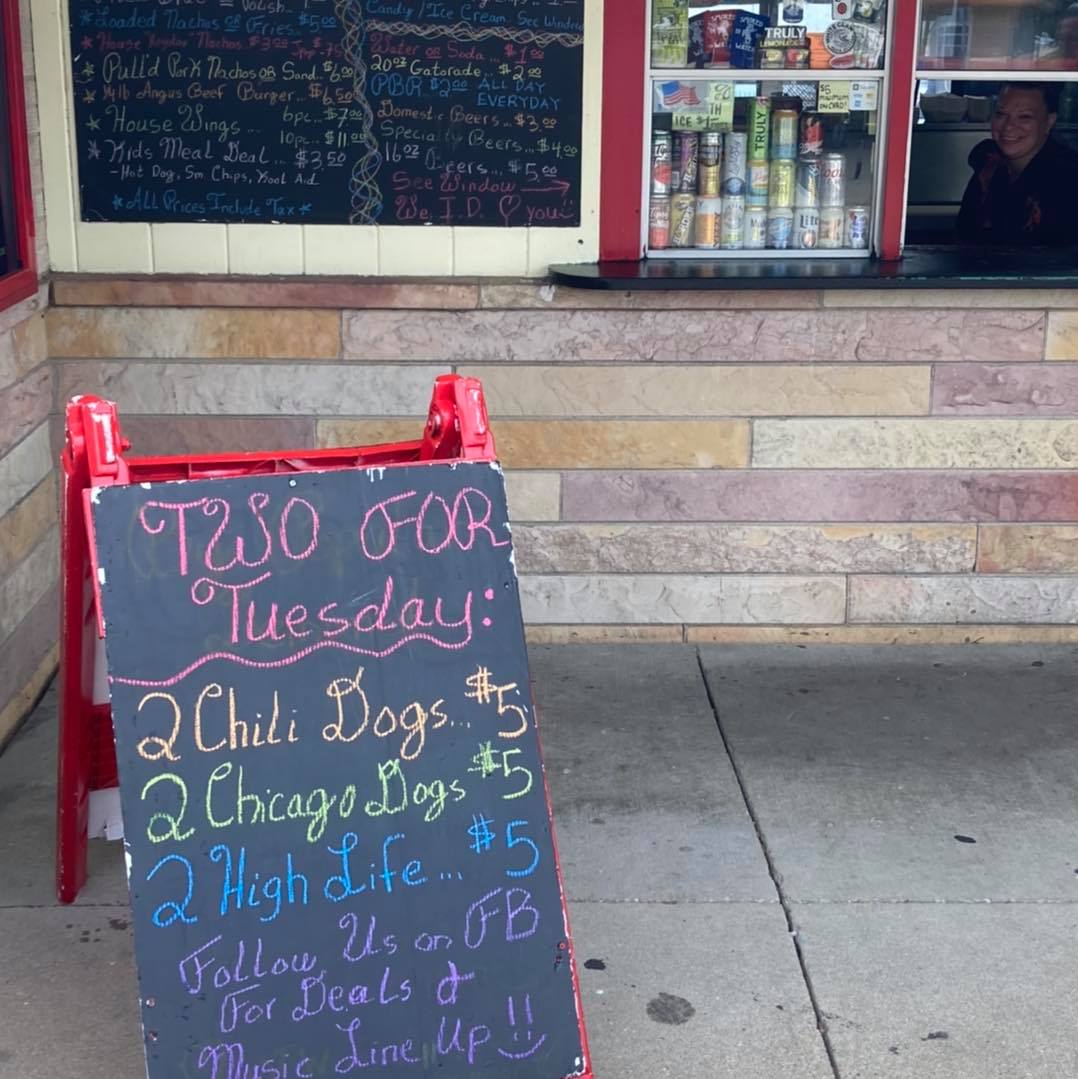 Loaded Nachos OR Fries. $5.00
* House "Regular" Nachos. $3.00
* Pull'd Pork Nachos OR Sand. $6.00
* 1/4 lb Angus Beef Burger... $6.50
* House Wings... 6pc.. $7.00
10pc. $11.00
* Kids Meal Deal... $3.50
- Hot Dog, Sm. Chips, Kool Aid
* All Prices Include Tax *
Candy / Ice Cream. See Window
Water OR Soda... $1.00
20oz Gatorade... $2.00
PBR $2.00 ALL DAY
EVERYDAY
Domestic Beers... $3.00
Specialty Beers... $4.00
16oz Beers... $5.00
See Window →
We I.D. ♡ you
TRULY
LEMONADE
$5
MINIMUM
ON CARD!
ICE
TRULY
Lite
TWO FOR
Tuesday:
2 Chili Dogs... $5
2 Chicago Dogs $5
2 High Life... $5
Follow Us on FB
For Deals &
Music Line Up!!